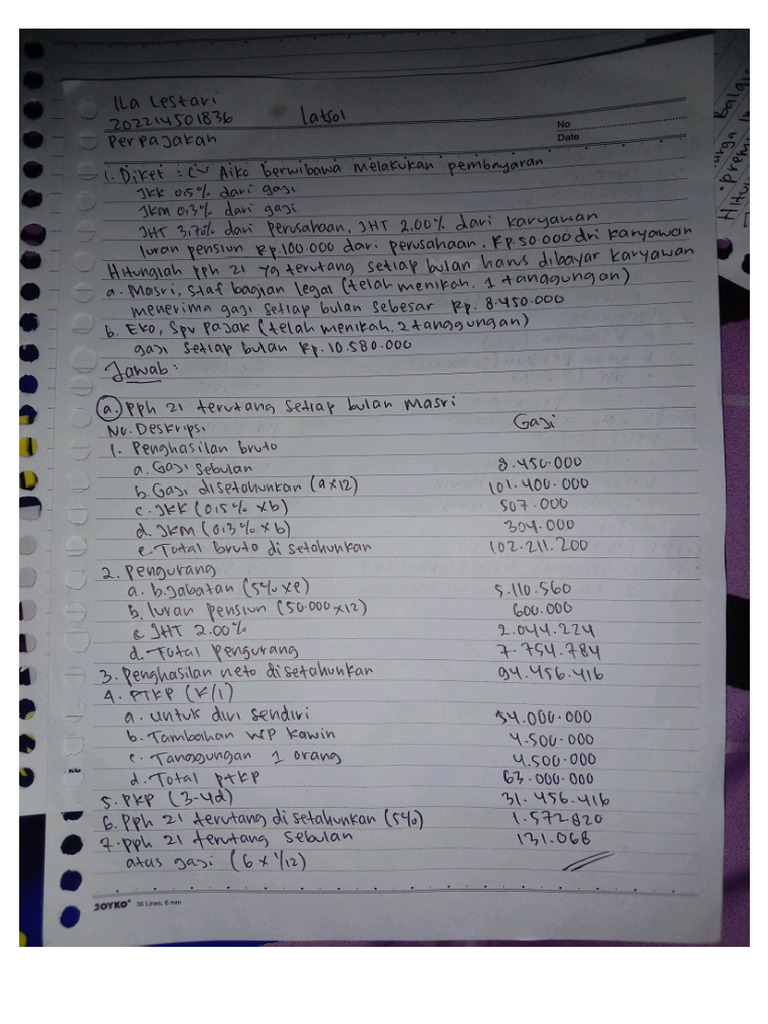 Ila Lestari
202214501836 latsol
Perpajakan
No
Date
1. Diket : CV Aiko berwibawa melakukan pembayaran
JKK 0,5% dari gaji
JKM 0,3% dari gaji
JHT 3,70% dari perusahaan, JHT 2.00% dari karyawan
Iuran pensiun Rp.100.000 dari perusahaan. Rp.50.000 dri karyawan
Hitunglah pph 21 yg terutang setiap bulan harus dibayar karyawan
a. Masri, Staf bagian legal (telah menikah, 1 tanggungan)
menerima gaji setiap bulan sebesar Rp. 8.450.000
b. Eko, Spv Pajak (telah menikah, 2 tanggungan)
gaji setiap bulan Rp.10.580.000
Jawab :
a. pph 21 terutang setiap bulan Masri
No. Deskripsi Gaji
1. Penghasilan bruto
a. Gaji sebulan 8.450.000
b. Gaji disetahunkan (a x 12) 101.400.000
c. JKK (0,5% x b) 507.000
d. JKM (0,3% x b) 304.000
e. Total bruto di setahunkan 102.211.200
2. Pengurang
a. b. Jabatan (5% x e) 5.110.560
b. Iuran pensiun (50.000 x 12) 600.000
c JHT 2.00% 2.044.224
d. Total pengurang 7.754.784
3. Penghasilan neto disetahunkan 94.456.416
4. PTKP (K/1)
a. untuk diri sendiri 54.000.000
b. Tambahan WP kawin 4.500.000
c. Tanggungan 1 orang 4.500.000
d. Total ptkp 63.000.000
5. PKP (3-4d) 31.456.416
6. Pph 21 terutang di setahunkan (5%) 1.572.820
7. pph 21 terutang sebulan 131.068
atas gaji (6 x 1/12)
JOYKO 36 Lines, 6 mm